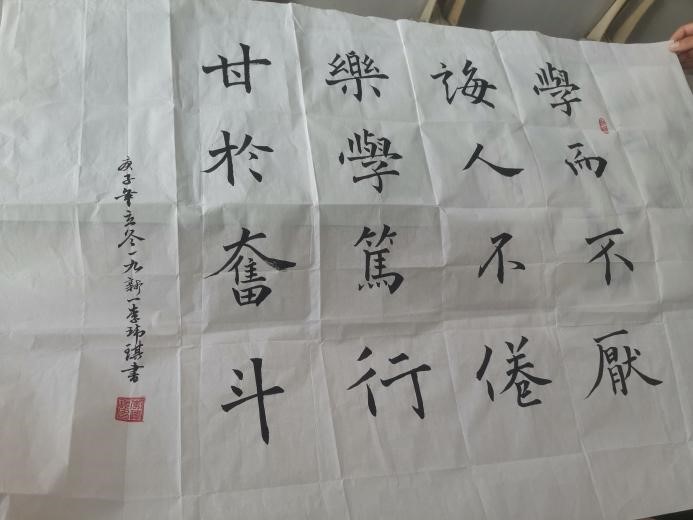 學而不厭
誨人不倦
樂學篤行
甘於奮斗
庚子年立冬一九新一李玮琪書